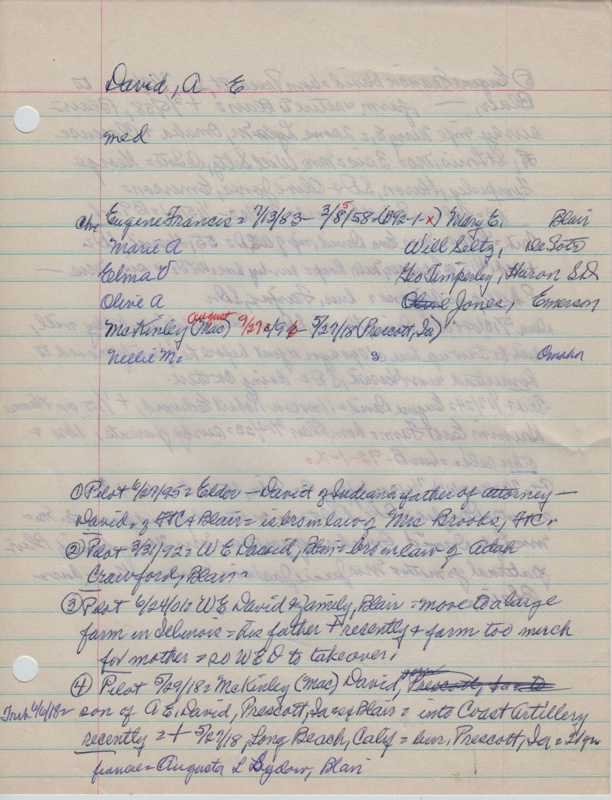 David, A E
med
Chr Eugene Francis = 7/13/83 - 3/8/58 = (892-1-x) Mary E. Blair
5
Marie A Will Seltz, De Soto
Elma V Geo Timperley, Huron S.D
Olive A Jones, Emerson
August
McKinley (Mac) 9/27 - 5/27/18 (Prescott, Ia)
Nellie M. Omaha
① Pilot 6/27/95 = Elder - David of Indiana father of attorney -
David, of FtC & Blair = is bro in law of Mrs Brooks, FtC.
② Pilot 3/31/92 = W E David, Blair = bro in law of Adah
Crawford, Blair
③ Pilot 6/24/01 = W E David & family, Blair = move to a large
farm in Illinois = his father + recently & farm too much
for mother = so W E D to take over.
④ Pilot 5/29/18 = McKinley (Mac) David,
Trib 6/6/18 = son of A E. David, Prescott, Ia = ex Blair = into Coast Artillery
recently = + 5/27/18, Long Beach, Calif = bur. Prescott, Ia =
fiancee = Augusta L Lydow, Blair